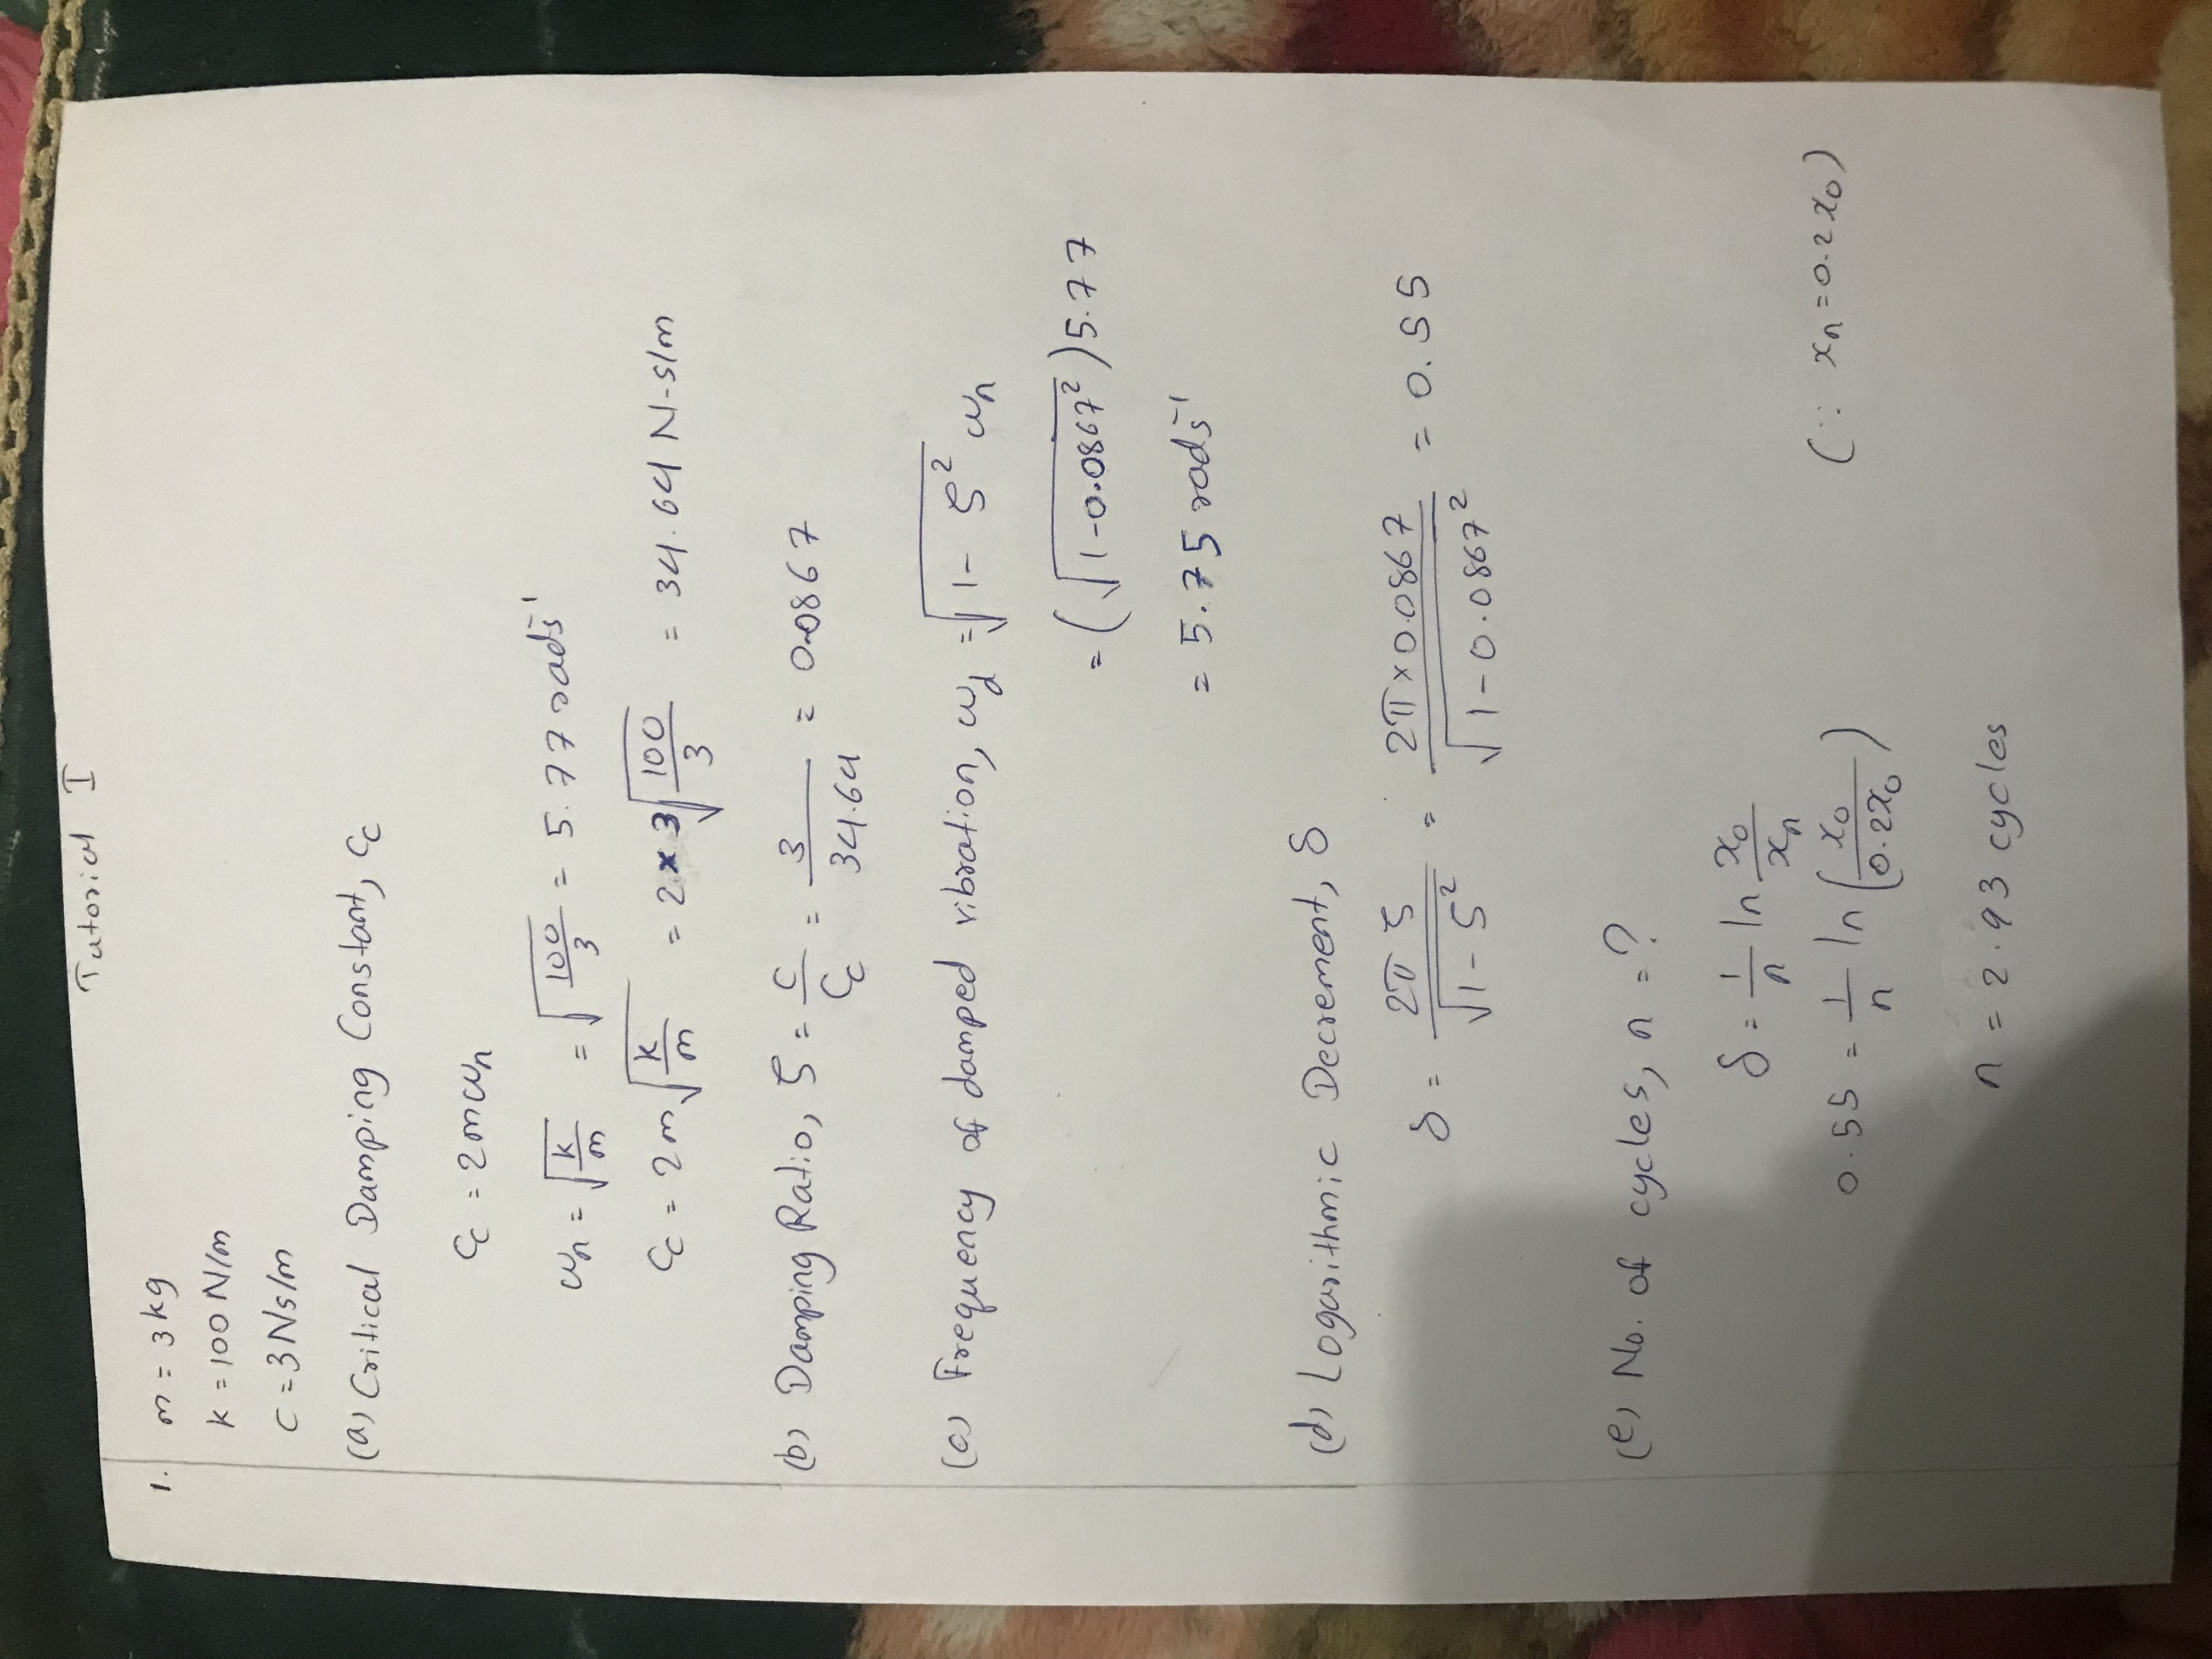 Tutorial I
1. m = 3 kg
k = 100 N/m
c = 3 Ns/m
(a) Critical Damping Constant, Cc
Cc = 2mωn
ωn = √(k/m) = √(100/3) = 5.77 rads⁻¹
Cc = 2m√(k/m) = 2 × 3√(100/3) = 34.64 N-s/m
(b) Damping Ratio, ζ = c/Cc = 3/34.64 = 0.0867
(c) Frequency of damped vibration, ωd = √(1 - ζ²) ωn
= (√(1-0.0867²))5.77
= 5.75 rads⁻¹
(d) Logarithmic Decrement, δ
δ = 2π ζ/√(1-ζ²) = 2π×0.0867/√(1-0.0867²) = 0.55
(e) No. of cycles, n = ?
δ = 1/n ln x₀/xn
0.55 = 1/n ln(x₀/0.2x₀) (∵ xn = 0.2x₀)
n = 2.93 cycles